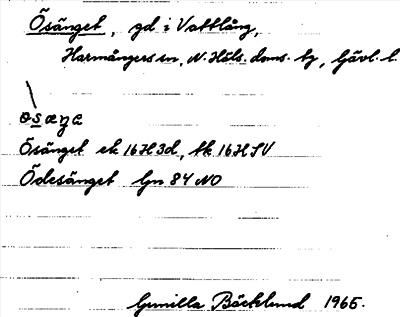 Ösänget, gd i Vattlång,
Harmångers sn, N. Häls. doms. tg, Gävl. l.
øsæŋe
Ösänget ek 16H3d, tk 16HSV
Ödesänget Gn 84 NO
Gunilla Bäcklund 1965.